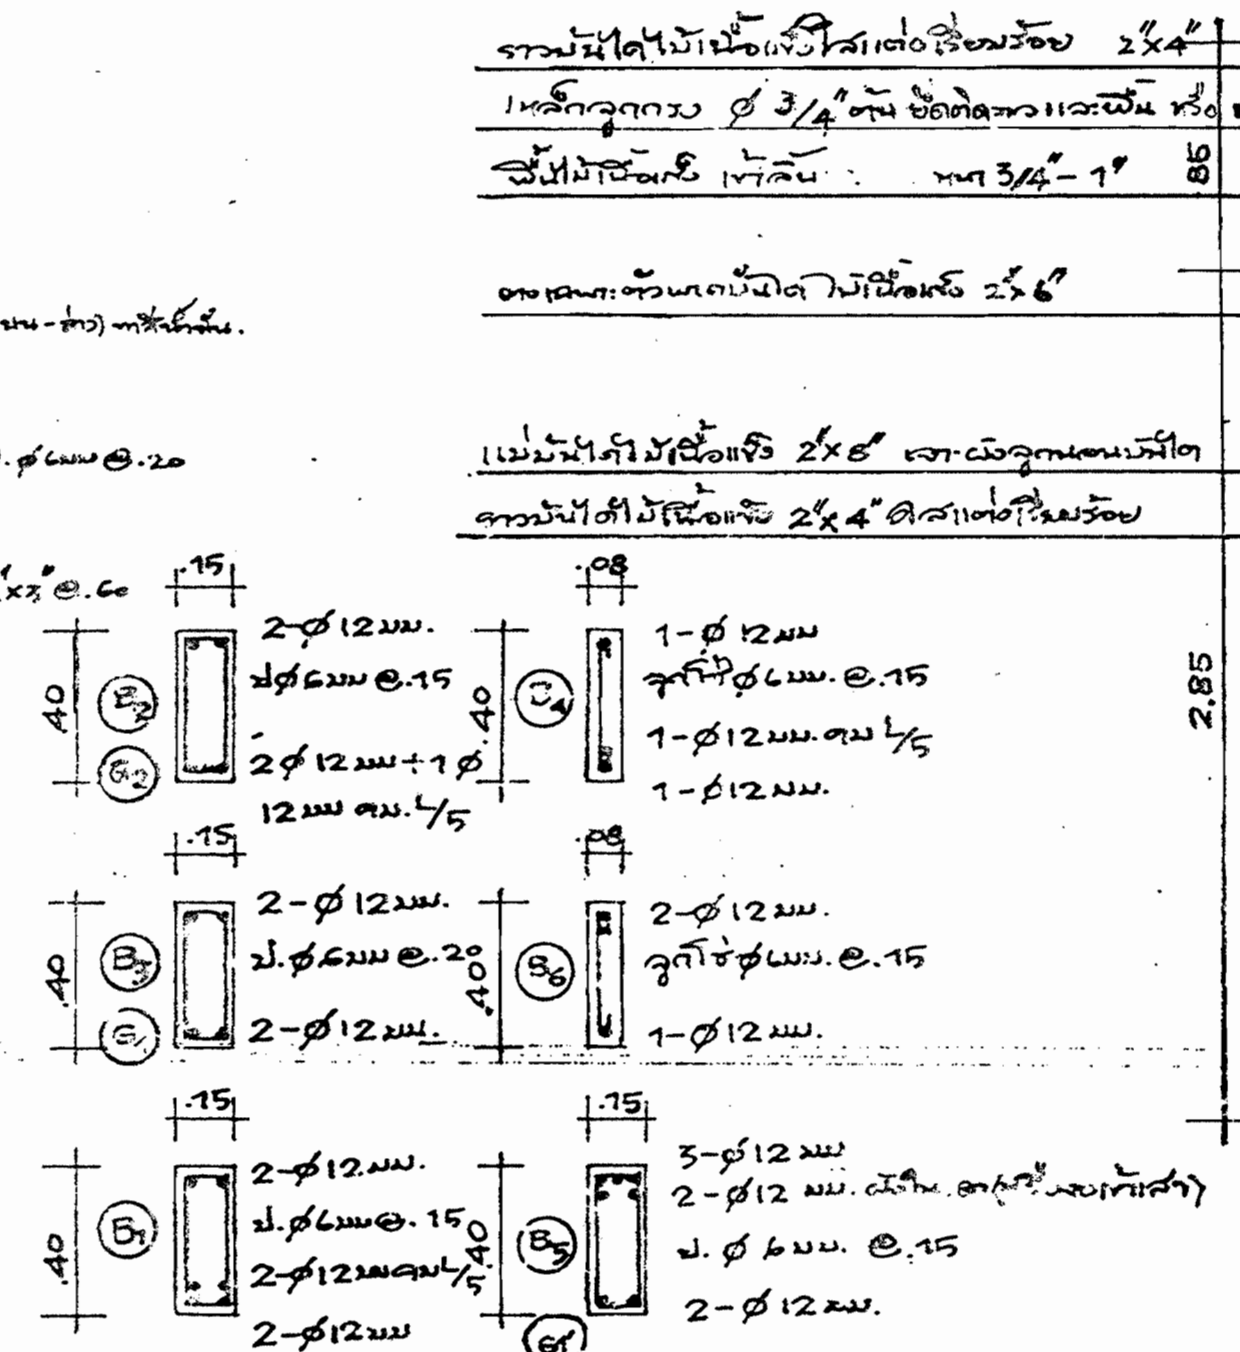 ราวบันไดไม้เนื้อแข็งใสแต่งเรียบร้อย 2"x4"
เหล็กลูกกรง ø 3/4" ตัน ยึดติดราวและพื้น หรือ
พื้นไม้เนื้อแข็ง เข้าลิ้น หนา 3/4" - 1"
.85
2"x6"
บันได ไม้เนื้อแข็ง
ø 6มม @ .20
แม่บันไดไม้เนื้อแข็ง 2"x8" ลูกนอนบันได
ราวบันไดไม้เนื้อแข็ง 2"x4" ใสแต่งเรียบร้อย
@ .60
2.85
.15
.40
B2
G2
2-ø 12 มม.
ป ø 6มม @ .15
2 ø 12 มม + 1 ø
12 มม คม. L/5
.08
.40
1-ø 12 มม
ลูกโซ่ ø 6มม. @ .15
1-ø 12 มม. คม L/5
1-ø 12 มม.
.15
.40
B3
2-ø 12 มม.
ป. ø 6มม @ .20
2-ø 12 มม.
.08
.40
B6
2-ø 12 มม.
ลูกโซ่ ø 6มม. @ .15
1-ø 12 มม.
.15
.40
B1
2-ø 12 มม.
ป. ø 6มม @ .15
2-ø 12 มม คม L/5
2-ø 12 มม
.15
.40
B5
3-ø 12 มม
2-ø 12 มม.
ป. ø 6 มม. @ .15
2-ø 12 มม.